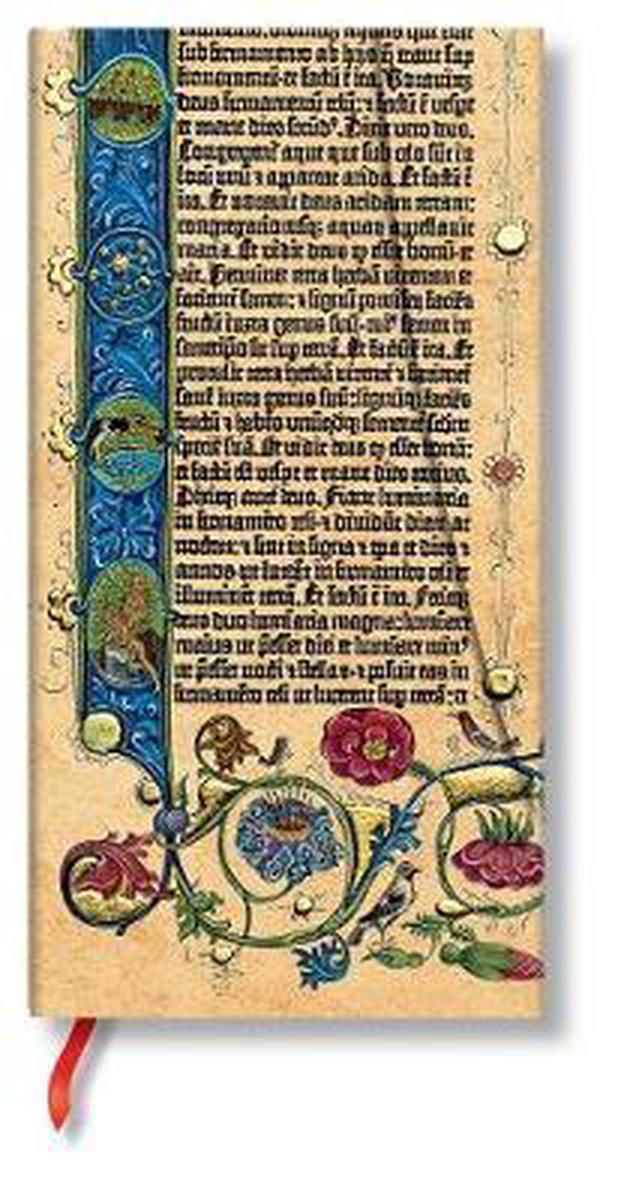 sub firmamento ab hijs que erant sup
firmamentū: et factū ē ita. Vocavitq;
deus firmamentū celū: ⁊ factū ē vespe
et mane dies secūdꝰ. Dixit vero deus.
Congregent aque que sub celo sūt in
locū unū ⁊ appareat arida. Et factū ē
ita. Et vocavit deus aridam terram:
congregacionesq; aquarū appellavit
maria. Et vidit deus ꝙ esset bonū· et
ait. Germinet terra herbā virentem et
facientē semen: ⁊ lignū faciēs
fructū iuxta genus suū· cuiꝰ semen in
semetipso sit sup terrā. Et factū ē ita. Et
protulit terra herbā virentē ⁊
iuxta genus suū: lignūq; faciēs
fructū ⁊ habēs
suā. Et vidit deus ꝙ esset bonū:
et factū est vespe et mane dies
deus. Fiant luminaria
in firmamēto celi· ⁊ dividāt diem ac
noctem: ⁊ sint in signa ⁊ tpa et dies ⁊
annos· ut luceāt in firmamēto celi et
illuminēt terrā. Et factū ē ita. Fecitq;
deus duo luminaria magna: luminare
maius ut pesset diei et luminare minꝰ
ut pesset nocti ⁊ stellas· ⁊ posuit eas in
firmamēto celi ut lucerent sup terrā: et